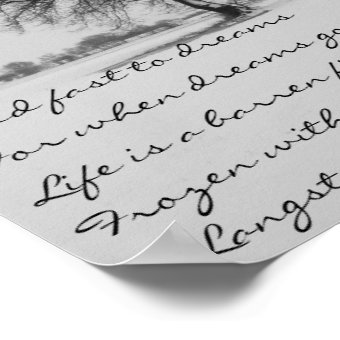 fast to dreams
when dreams go
Life is a barren
Frozen with
Langst